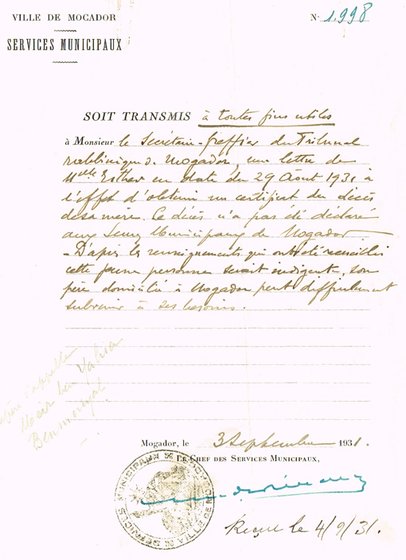 VILLE DE MOGADOR
N° 1998
SERVICES MUNICIPAUX
SOIT TRANSMIS à toutes fins utiles
à Monsieur le Secrétaire-Greffier du Tribunal
rabbinique de Mogador, une lettre de
Melle Esther en date du 29 Août 1931 à
l'effet d'obtenir un certificat du décès
de sa mère. Ce décès n'a pas été déclaré
aux Serv. Municipaux de Mogador.
D'après les renseignements qui ont été recueillis
cette jeune personne serait indigente, son
père domicilié à Mogador peut difficilement
subvenir à ses besoins.
Meir Ben Yahia
Mogador, le 3 Septembre 1931.
LE CHEF DES SERVICES MUNICIPAUX,
SERVICES MUNICIPAUX
Reçu le 4/9/31.